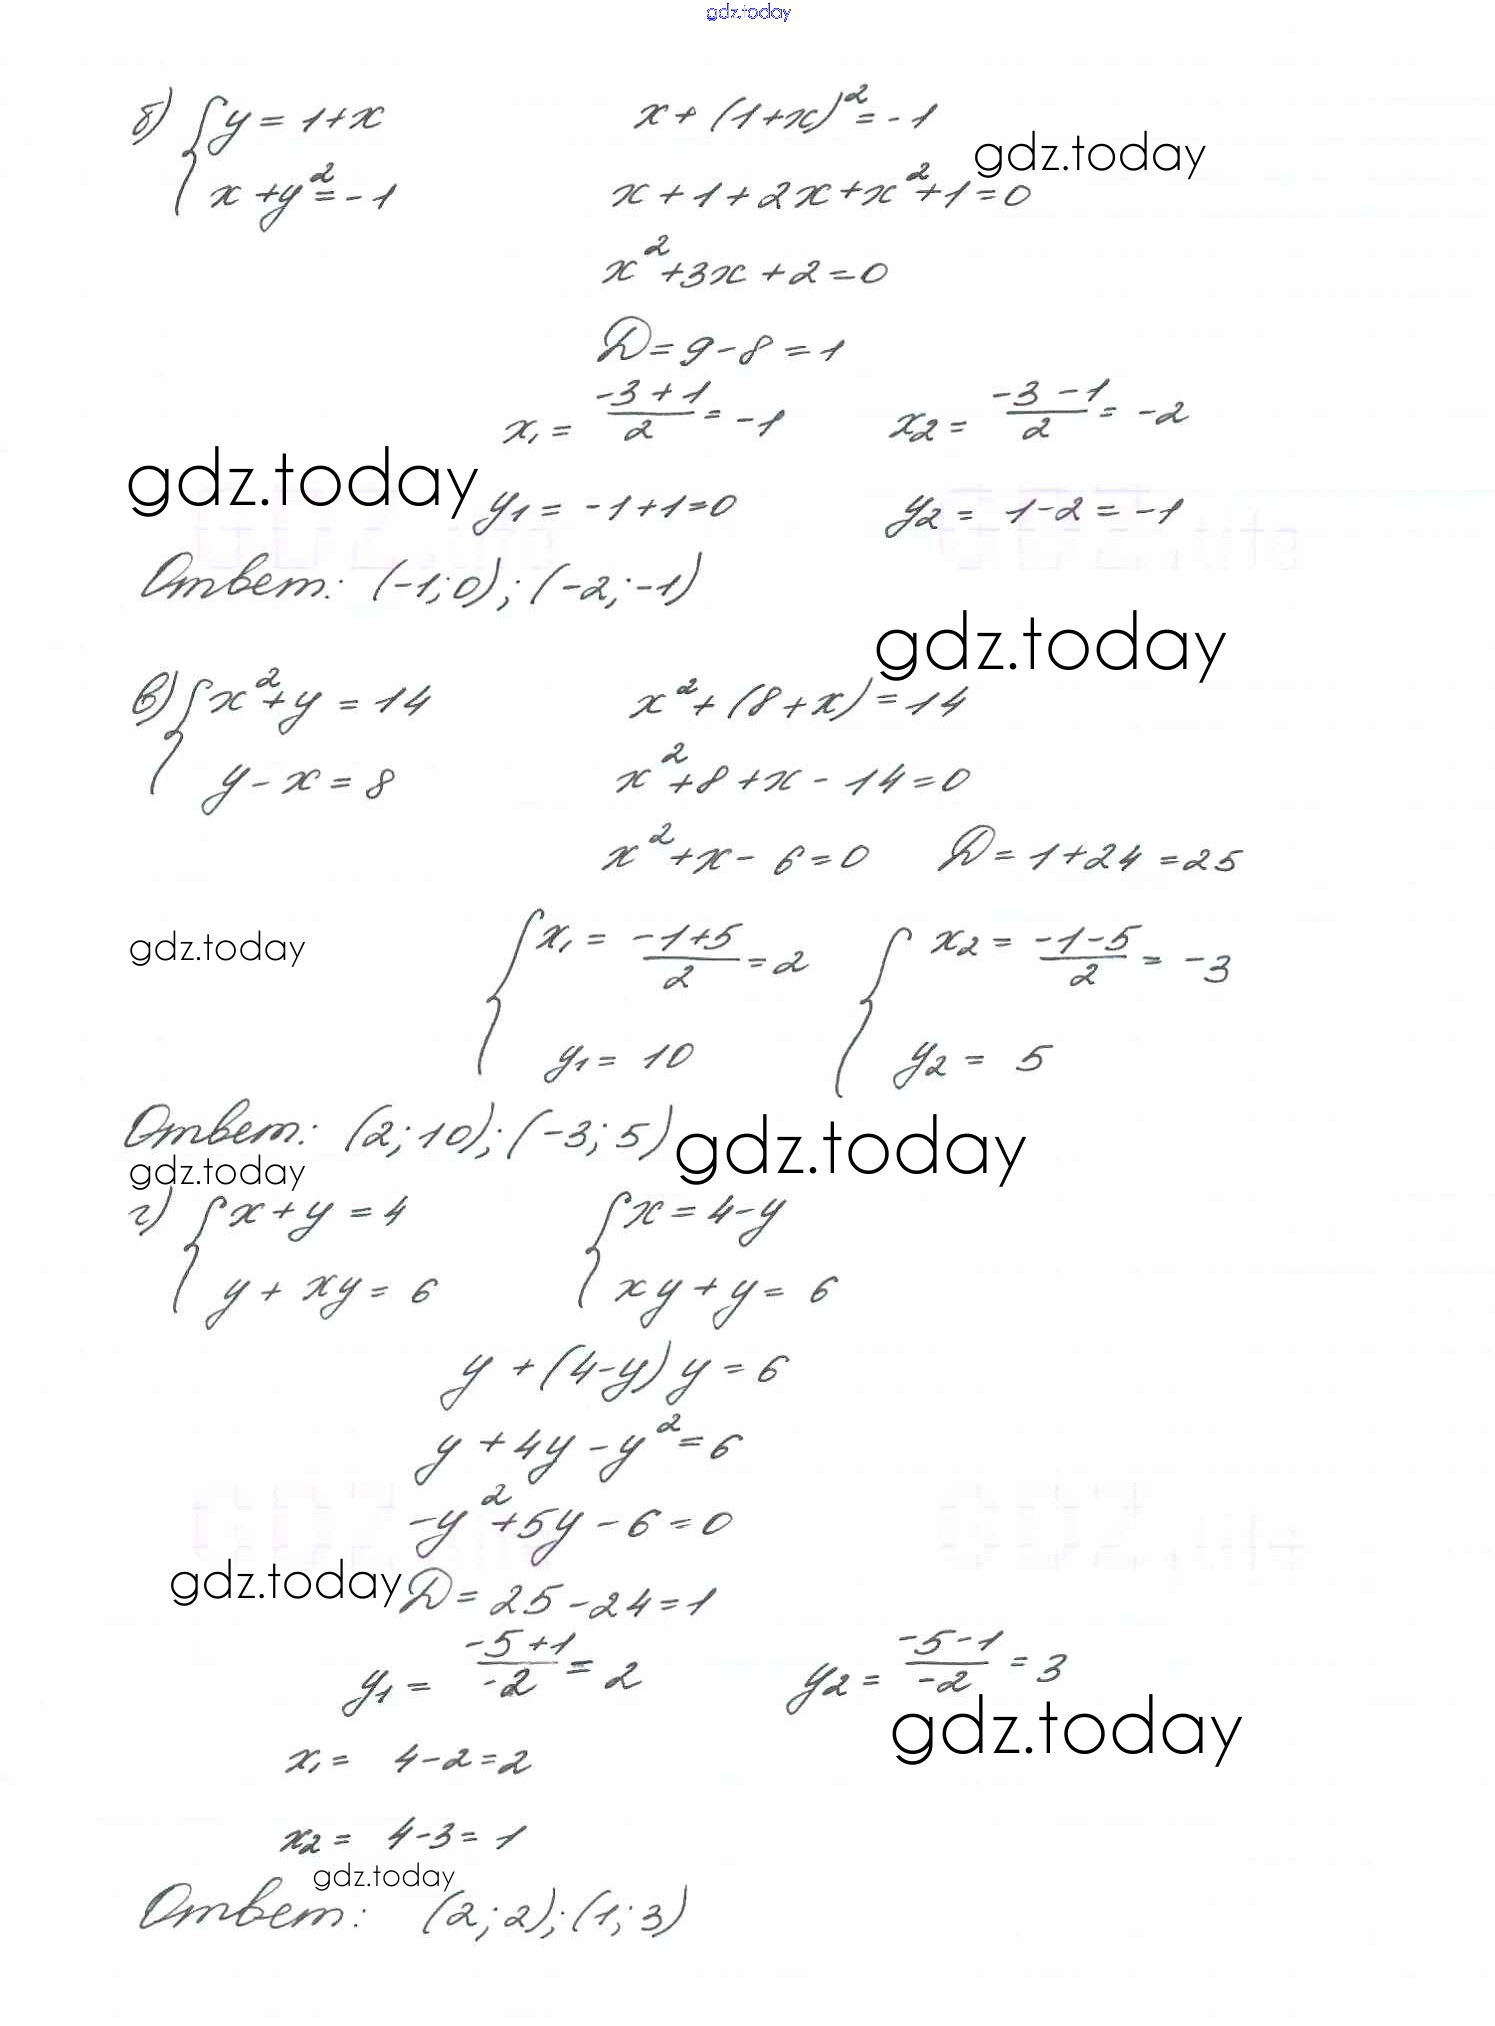 gdz.today
б) { y = 1+x    x + (1+x)² = -1
gdz.today
x + y² = -1    x + 1 + 2x + x² + 1 = 0
x² + 3x + 2 = 0
D = 9 - 8 = 1
x₁ = (-3+1)/2 = -1    x₂ = (-3-1)/2 = -2
gdz.today
y₁ = -1+1 = 0    y₂ = 1-2 = -1
Ответ: (-1; 0); (-2; -1)
gdz.today
в) { x² + y = 14    x² + (8+x) = 14
y - x = 8    x² + 8 + x - 14 = 0
x² + x - 6 = 0    D = 1 + 24 = 25
gdz.today
{ x₁ = (-1+5)/2 = 2    { x₂ = (-1-5)/2 = -3
y₁ = 10    y₂ = 5
Ответ: (2; 10); (-3; 5)
gdz.today
gdz.today
г) { x + y = 4    { x = 4 - y
y + xy = 6    xy + y = 6
y + (4-y) y = 6
y + 4y - y² = 6
-y² + 5y - 6 = 0
gdz.today
D = 25 - 24 = 1
y₁ = (-5+1)/-2 = 2    y₂ = (-5-1)/-2 = 3
gdz.today
x₁ = 4 - 2 = 2
x₂ = 4 - 3 = 1
gdz.today
Ответ: (2; 2); (1; 3)